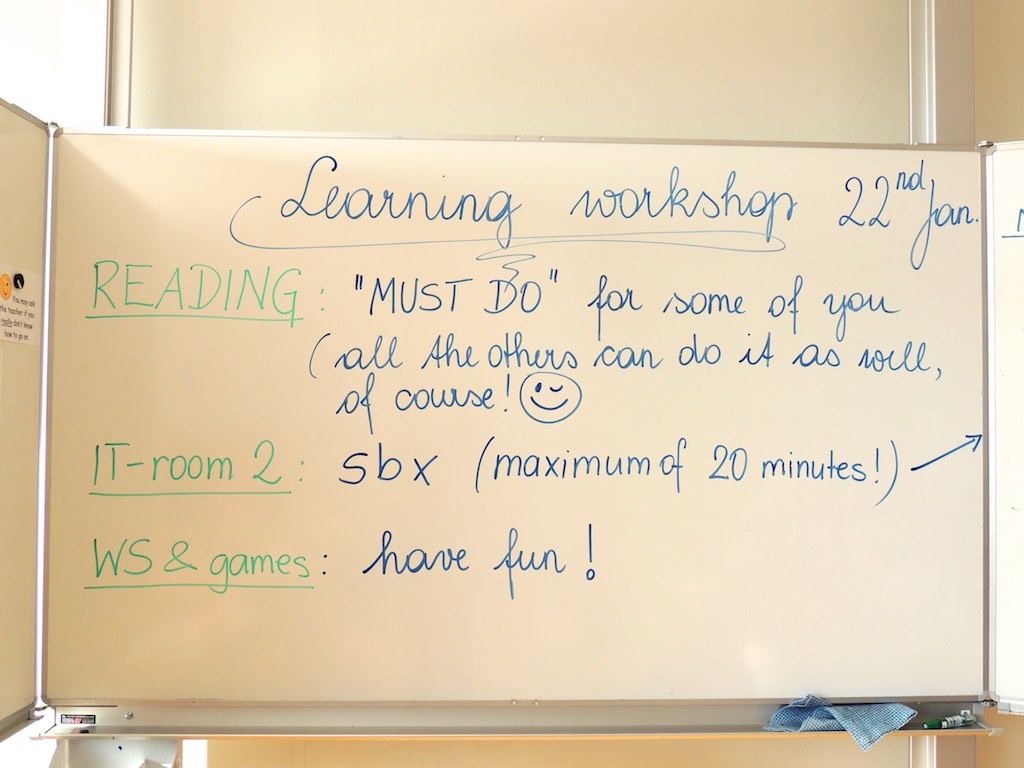 Learning workshop 22nd Jan.
READING: "MUST DO" for some of you
(all the others can do it as well,
of course!
IT-room 2: sbx (maximum of 20 minutes!)
WS & games: have fun!
You may ask
the teacher if you
really don't know
how to go on.